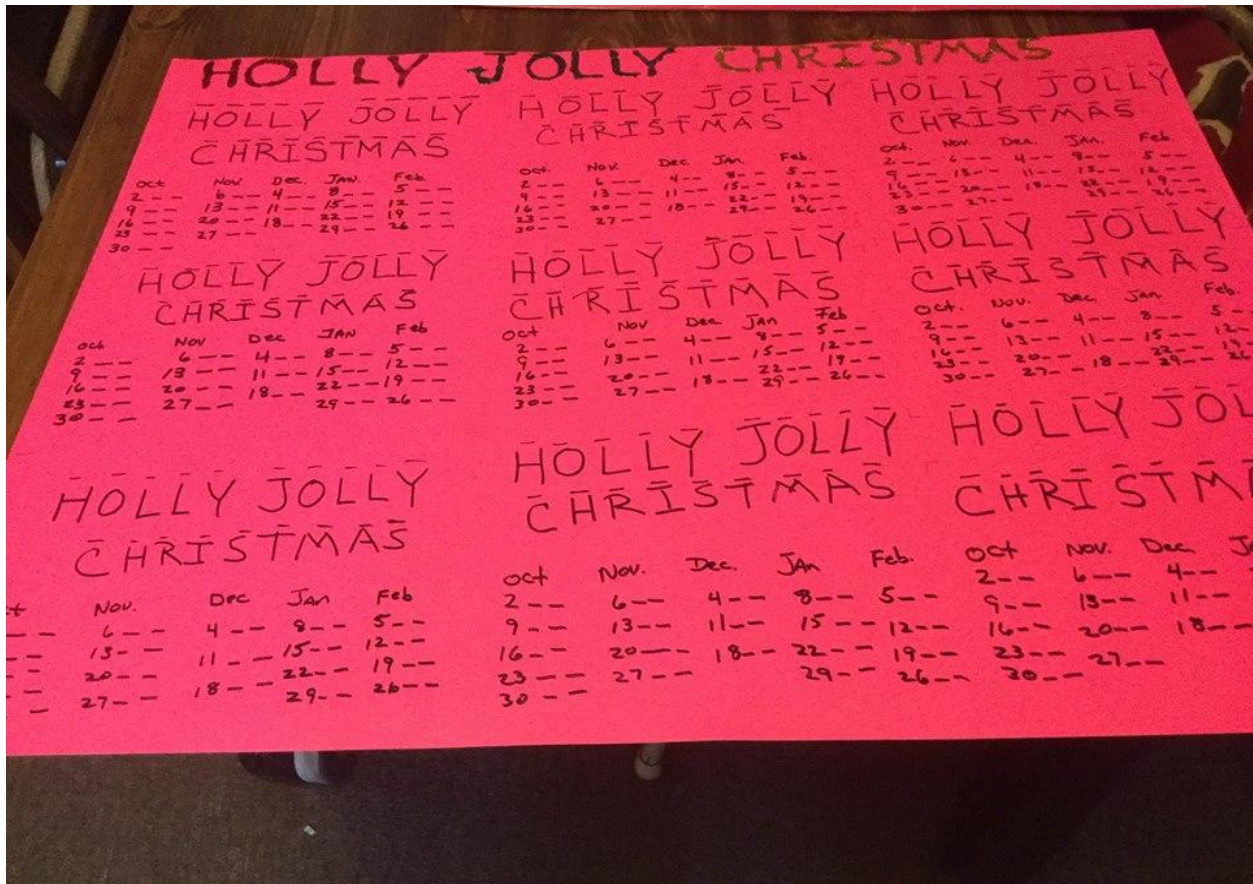 HOLLY JOLLY CHRISTMAS
HOLLY JOLLY
CHRISTMAS
Oct Nov. Dec. JAN. Feb.
2 -- 6 -- 4 -- 8 -- 5 --
9 -- 13 -- 11 -- 15 -- 12 --
16 -- 20 -- 18 -- 22 -- 19 --
23 -- 27 -- 29 -- 26 --
30 --
HOLLY JOLLY
CHRISTMAS
Oct. Nov. Dec. Jan. Feb.
2 -- 6 -- 4 -- 8 -- 5 --
9 -- 13 -- 11 -- 15 -- 12 --
16 -- 20 -- 18 -- 22 -- 19 --
23 -- 27 -- 29 -- 26 --
30 --
HOLLY JOLLY
CHRISTMAS
Oct. Nov. Dec. Jan. Feb.
2 -- 6 -- 4 -- 8 -- 5 --
9 -- 13 -- 11 -- 15 -- 12 --
16 -- 20 -- 18 -- 22 -- 19 --
23 -- 27 -- 29 -- 26 --
30 --
HOLLY JOLLY
CHRISTMAS
Oct Nov Dec JAN Feb
2 -- 6 -- 4 -- 8 -- 5 --
9 -- 13 -- 11 -- 15 -- 12 --
16 -- 20 -- 18 -- 22 -- 19 --
23 -- 27 -- 29 -- 26 --
30 --
HOLLY JOLLY
CHRISTMAS
Oct Nov Dec. JAn Feb
2 -- 6 -- 4 -- 8 -- 5 --
9 -- 13 -- 11 -- 15 -- 12 --
16 -- 20 -- 18 -- 22 -- 19 --
23 -- 27 -- 29 -- 26 --
30 --
HOLLY JOLLY
CHRISTMAS
Oct. Nov. Dec. JAn. Feb.
2 -- 6 -- 4 -- 8 -- 5 -
9 -- 13 -- 11 -- 15 -- 12 -
16 -- 20 -- 18 -- 22 -- 19 -
23 -- 27 -- 29 -- 26
30 --
HOLLY JOLLY
CHRISTMAS
Nov. Dec JAn Feb
6 -- 4 -- 8 -- 5 --
13 -- 11 -- 15 -- 12 --
20 -- 18 -- 22 -- 19 --
27 -- 29 -- 26 --
HOLLY JOLLY
CHRISTMAS
Oct Nov. Dec. JAn Feb.
2 -- 6 -- 4 -- 8 -- 5 --
9 -- 13 -- 11 -- 15 -- 12 --
16 -- 20 -- 18 -- 22 -- 19 --
23 -- 27 -- 29 -- 26 --
30 --
HOLLY JOL
CHRISTMA
Oct Nov. Dec. J
2 -- 6 -- 4 --
9 -- 13 -- 11 --
16 -- 20 -- 18 --
23 -- 27 --
30 --